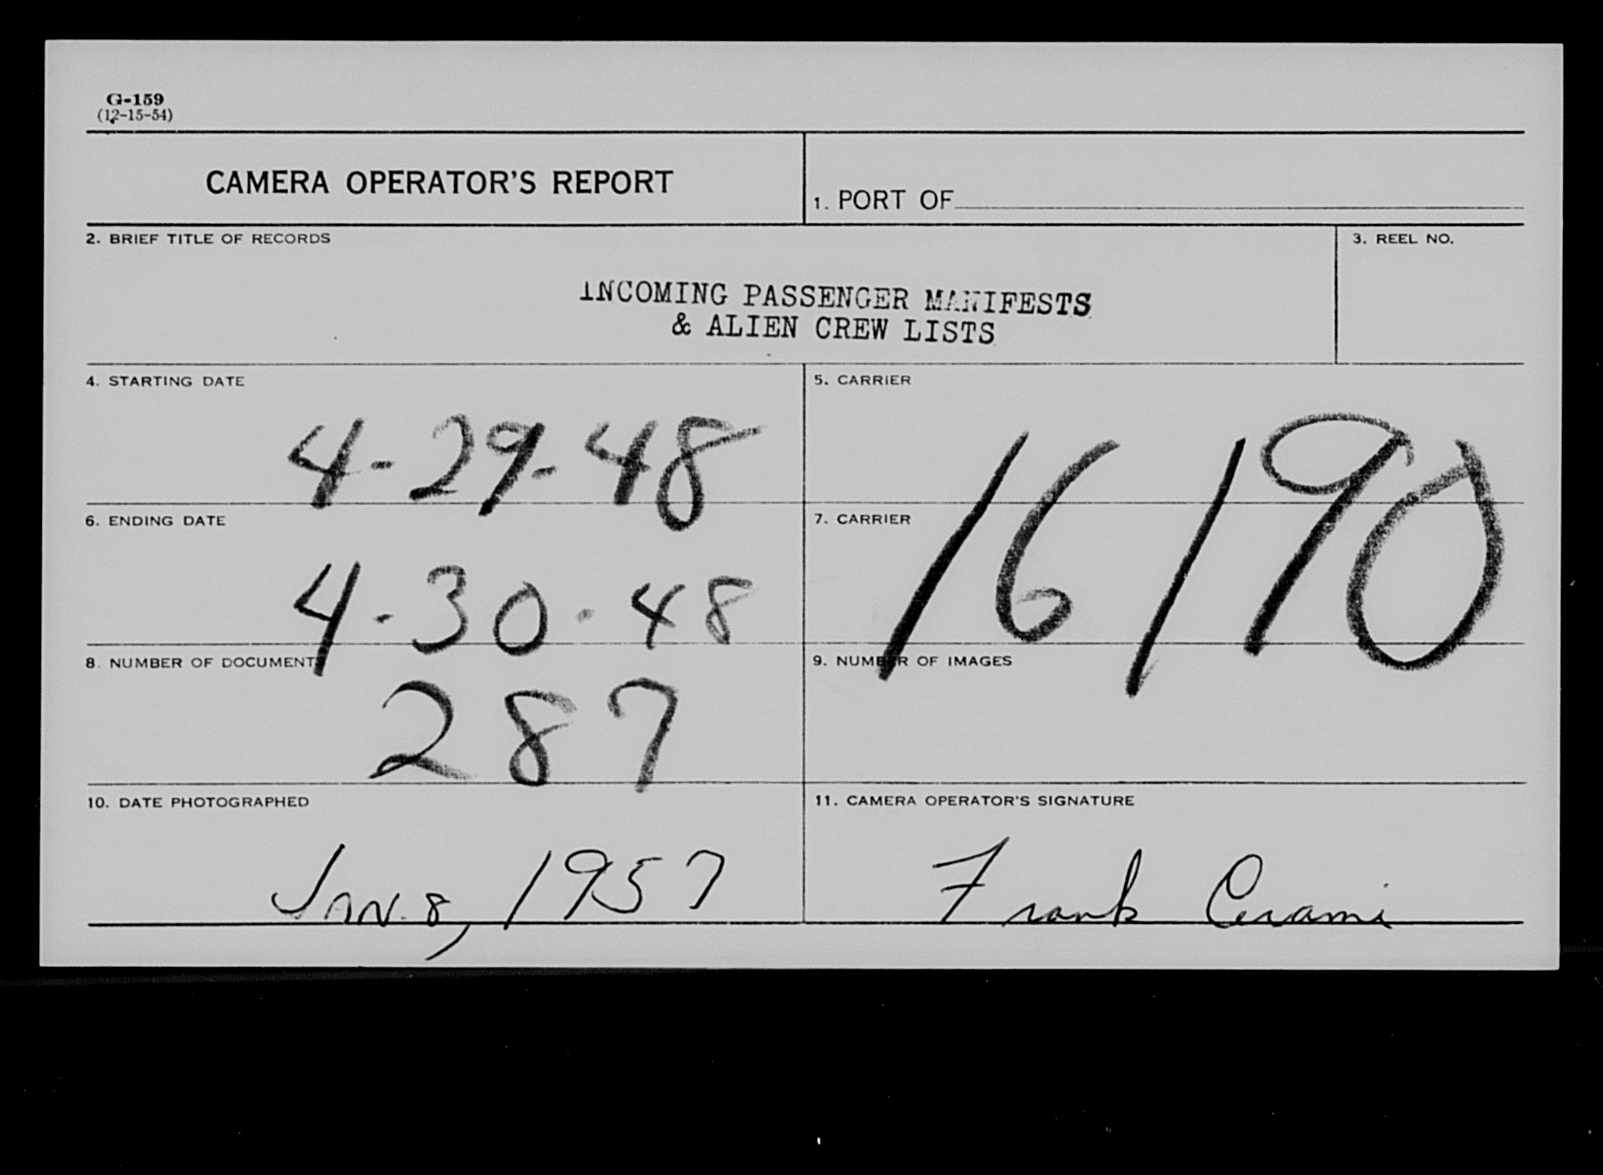 G-159
(12-15-54)
CAMERA OPERATOR'S REPORT
1. PORT OF
2. BRIEF TITLE OF RECORDS
3. REEL NO.
INCOMING PASSENGER MANIFESTS
& ALIEN CREW LISTS
4. STARTING DATE
4-29-48
5. CARRIER
16190
6. ENDING DATE
4-30-48
7. CARRIER
8. NUMBER OF DOCUMENTS
287
9. NUMBER OF IMAGES
10. DATE PHOTOGRAPHED
JAN. 8, 1957
11. CAMERA OPERATOR'S SIGNATURE
Frank Cerami